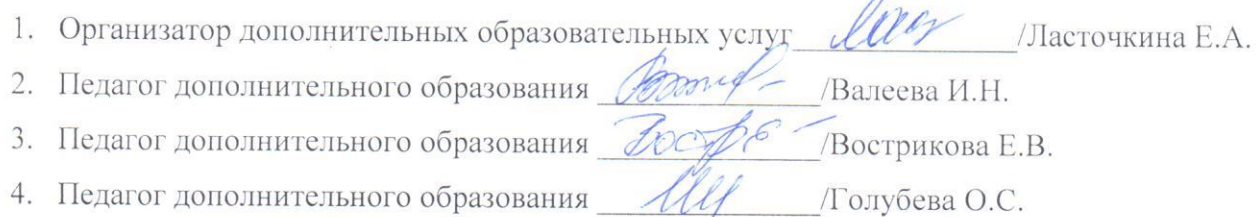 1. Организатор дополнительных образовательных услуг /Ласточкина Е.А.
2. Педагог дополнительного образования /Валеева И.Н.
3. Педагог дополнительного образования /Вострикова Е.В.
4. Педагог дополнительного образования /Голубева О.С.